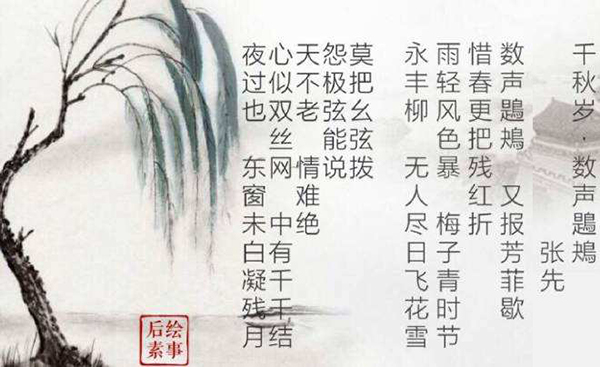 千秋岁·数声鶗鴂
张先
数声鶗鴂 又报芳菲歇
惜春更把残红折
雨轻风色暴 梅子青时节
永丰柳 无人尽日飞花雪
莫把幺弦拨
怨极弦能说
天不老 情难绝
心似双丝网 中有千千结
夜过也 东窗未白凝残月
绘事
后素